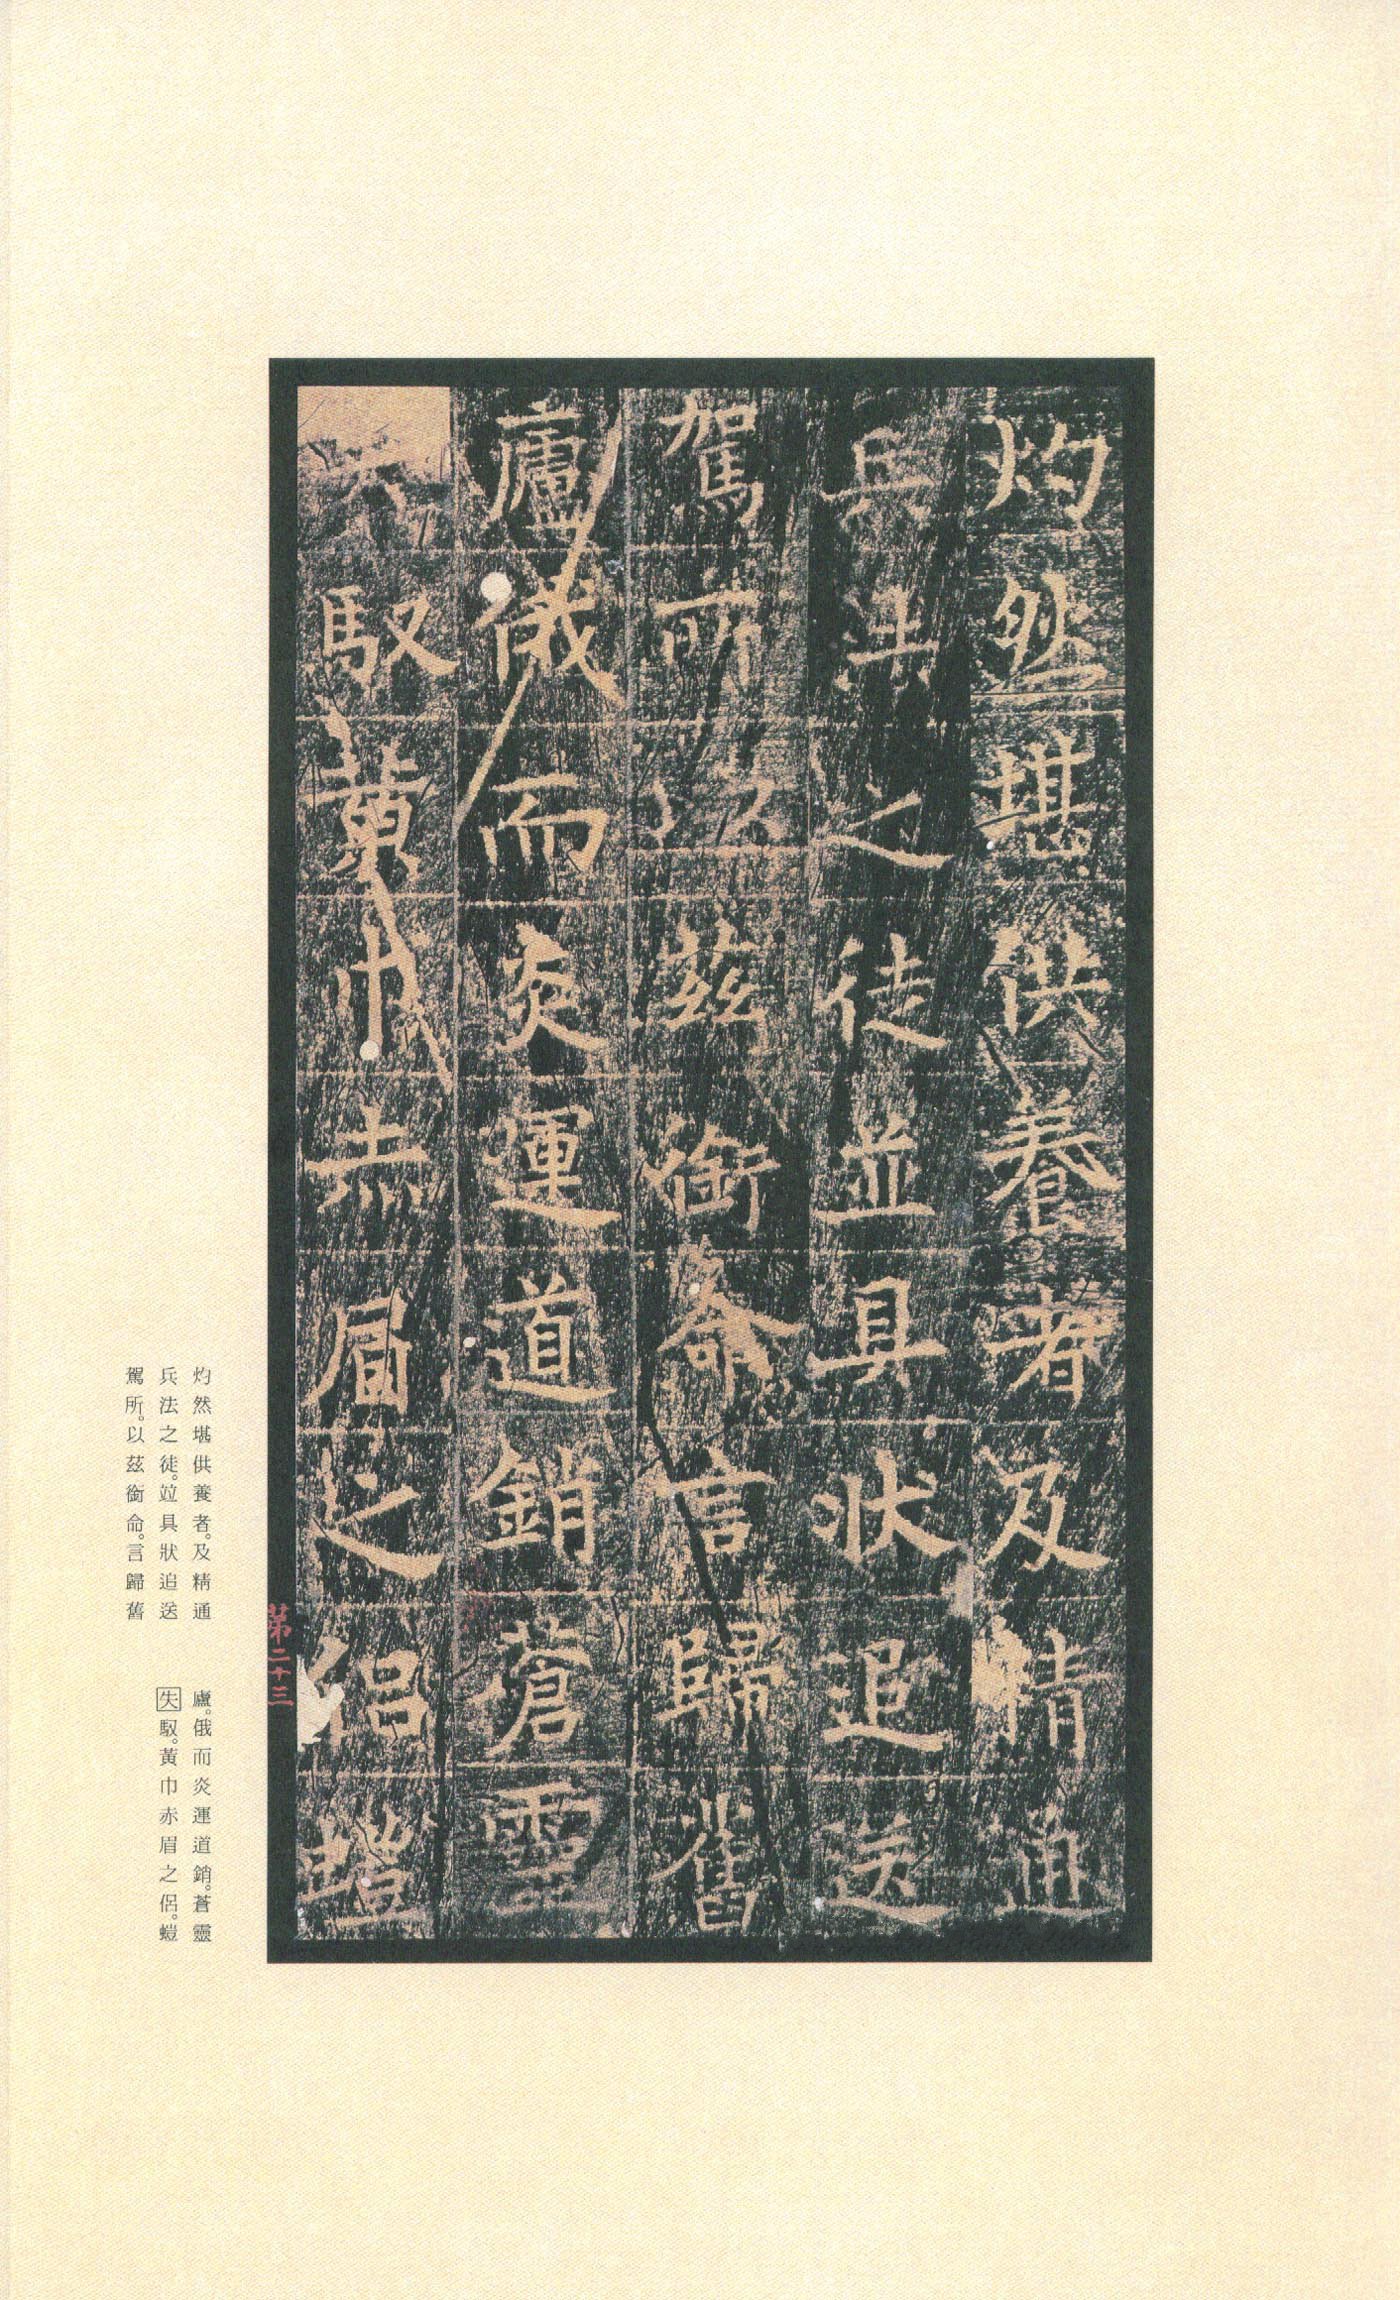 灼然堪供養者及精通
兵法之徒並具狀追送
駕所以茲銜命言歸舊
廬俄而炎運道銷蒼靈
失馭黃巾赤眉之侶
第二十三
灼然堪供養者。及精通
兵法之徒。竝具狀追送
駕所。以茲銜命。言歸舊
廬。俄而炎運道銷。蒼靈
失馭。黃巾赤眉之侶。螘